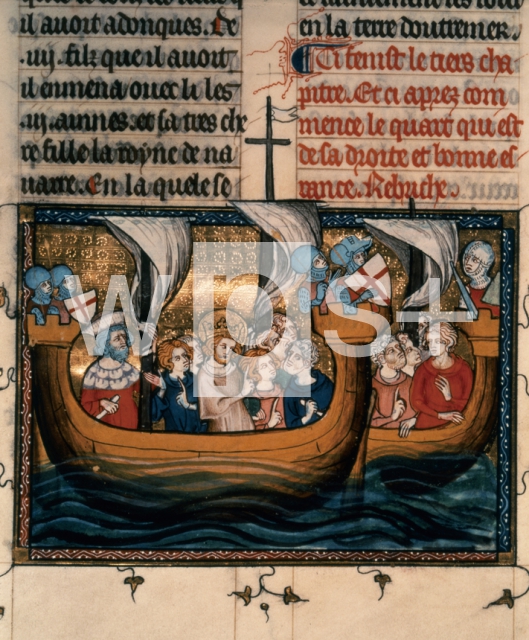 il auoit adonques. De
.iiij. filz que il auoit
il enmena ouec li les
.iij. ainnes. et sa tres chi
re fille la royne de na
uarre. En la quele se
en la terre doutremer.
Ci fenist le tiers cha
pitre. Et ci apres com
mence le quart qui est
de sa droite et bonne es
perance. Rebriche.
WPS+